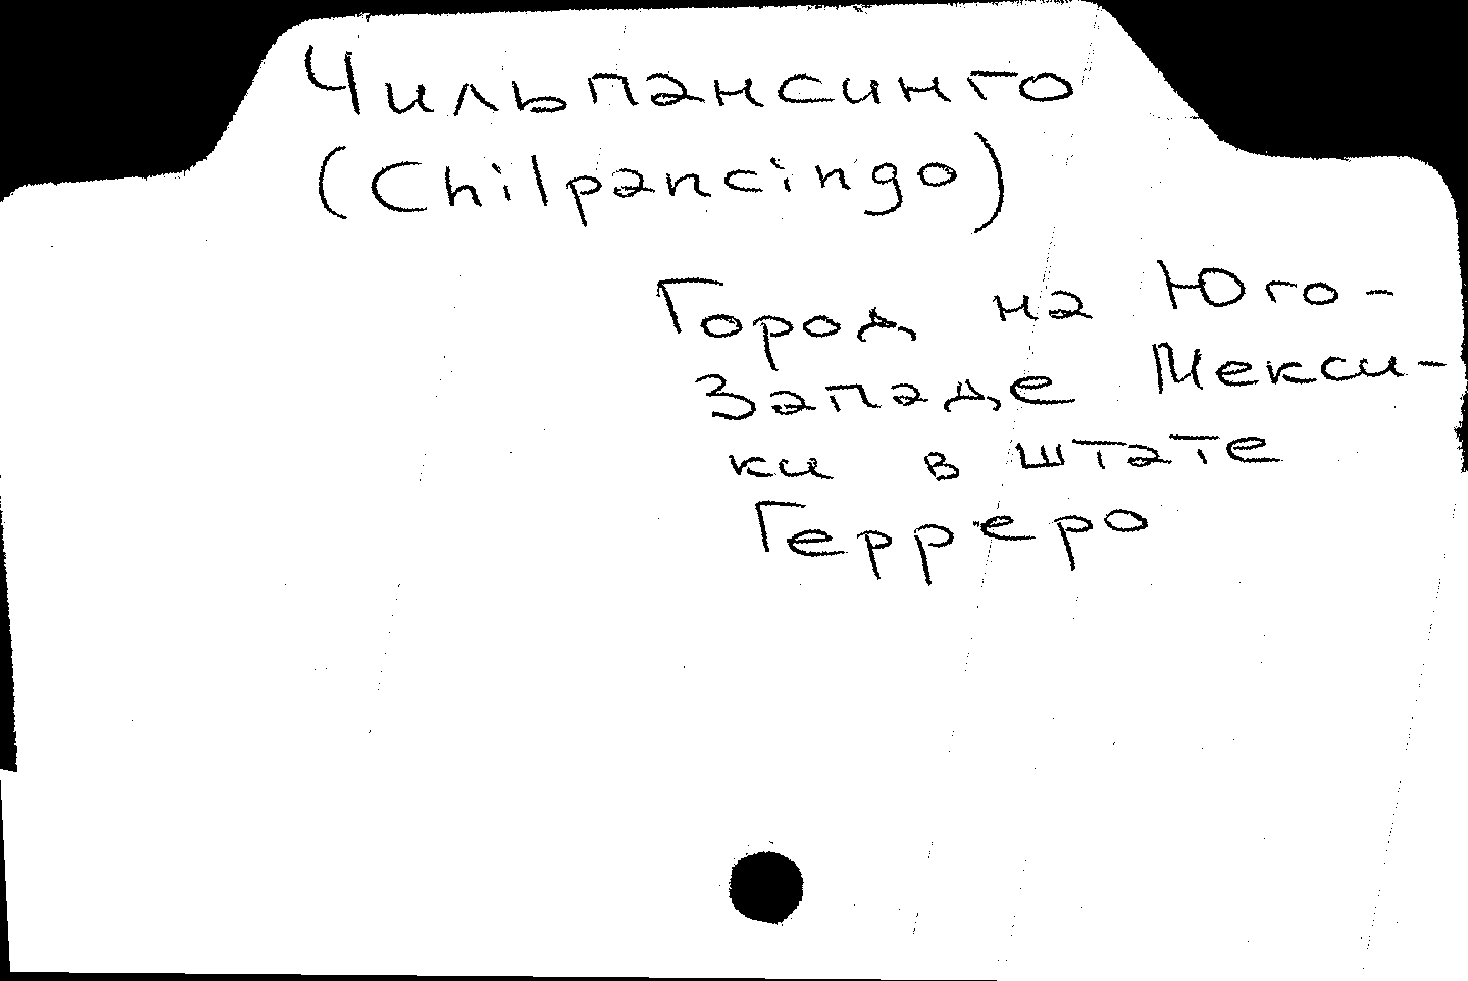 Чильпансинго
(Chilpancingo)
Город на Юго-
Западе Мекси-
ки в штате
Герреро